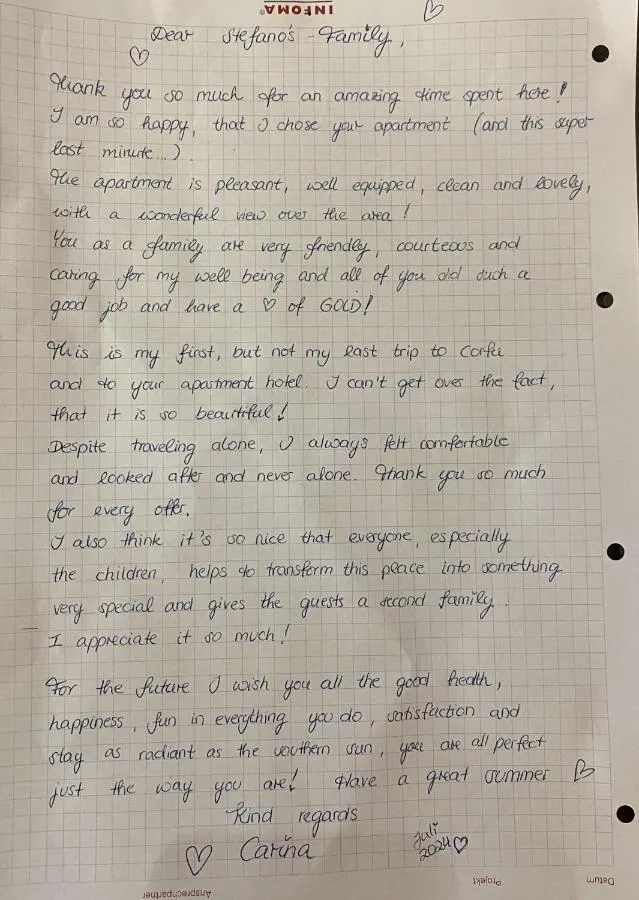 INFOMA®
Dear Stefano's - Family,
Thank you so much for an amazing time spent here!
I am so happy, that I chose your apartment (and this super
last minute...).
The apartment is pleasant, well equipped, clean and lovely,
with a wonderful view over the area!
You as a family are very friendly, courteous and
caring for my well being and all of you did such a
good job and have a ♡ of GOLD!
This is my first, but not my last trip to Corfu
and to your apartment hotel. I can't get over the fact,
that it is so beautiful!
Despite traveling alone, I always felt comfortable
and looked after and never alone. Thank you so much
for every offer.
I also think it's so nice that everyone, especially
the children, helps to transform this peace into something
very special and gives the guests a second family.
I appreciate it so much!
For the future I wish you all the good health,
happiness, fun in everything you do, satisfaction and
stay as radiant as the southern sun, you are all perfect
just the way you are! Have a great summer ♡
Kind regards
♡ Carina
Juli
2024 ♡
Ansprechpartner
Projekt
Datum